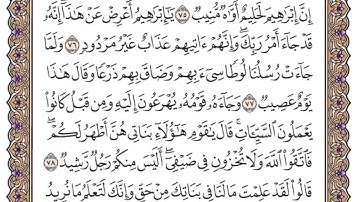 إِنَّ إِبْرَٰهِيمَ لَحَلِيمٌ أَوَّٰهٌ مُّنِيبٌ ٧٥ يَٰٓإِبْرَٰهِيمُ أَعْرِضْ عَنْ هَٰذَآ إِنَّهُۥ
قَدْ جَآءَ أَمْرُ رَبِّكَ وَإِنَّهُمْ ءَاتِيهِمْ عَذَابٌ غَيْرُ مَرْدُودٍ ٧٦ وَلَمَّا
جَآءَتْ رُسُلُنَا لُوطًا سِيٓءَ بِهِمْ وَضَاقَ بِهِمْ ذَرْعًا وَقَالَ هَٰذَا
يَوْمٌ عَصِيبٌ ٧٧ وَجَآءَهُۥ قَوْمُهُۥ يُهْرَعُونَ إِلَيْهِ وَمِن قَبْلُ كَانُوا۟
يَعْمَلُونَ ٱلسَّيِّـَٔاتِ قَالَ يَٰقَوْمِ هَٰٓؤُلَآءِ بَنَاتِى هُنَّ أَطْهَرُ لَكُمْ
فَٱتَّقُوا۟ ٱللَّهَ وَلَا تُخْزُونِ فِى ضَيْفِىٓ أَلَيْسَ مِنكُمْ رَجُلٌ رَّشِيدٌ ٧٨
قَالُوا۟ لَقَدْ عَلِمْتَ مَا لَنَا فِى بَنَاتِكَ مِنْ حَقٍّ وَإِنَّكَ لَتَعْلَمُ مَا نُرِيدُ